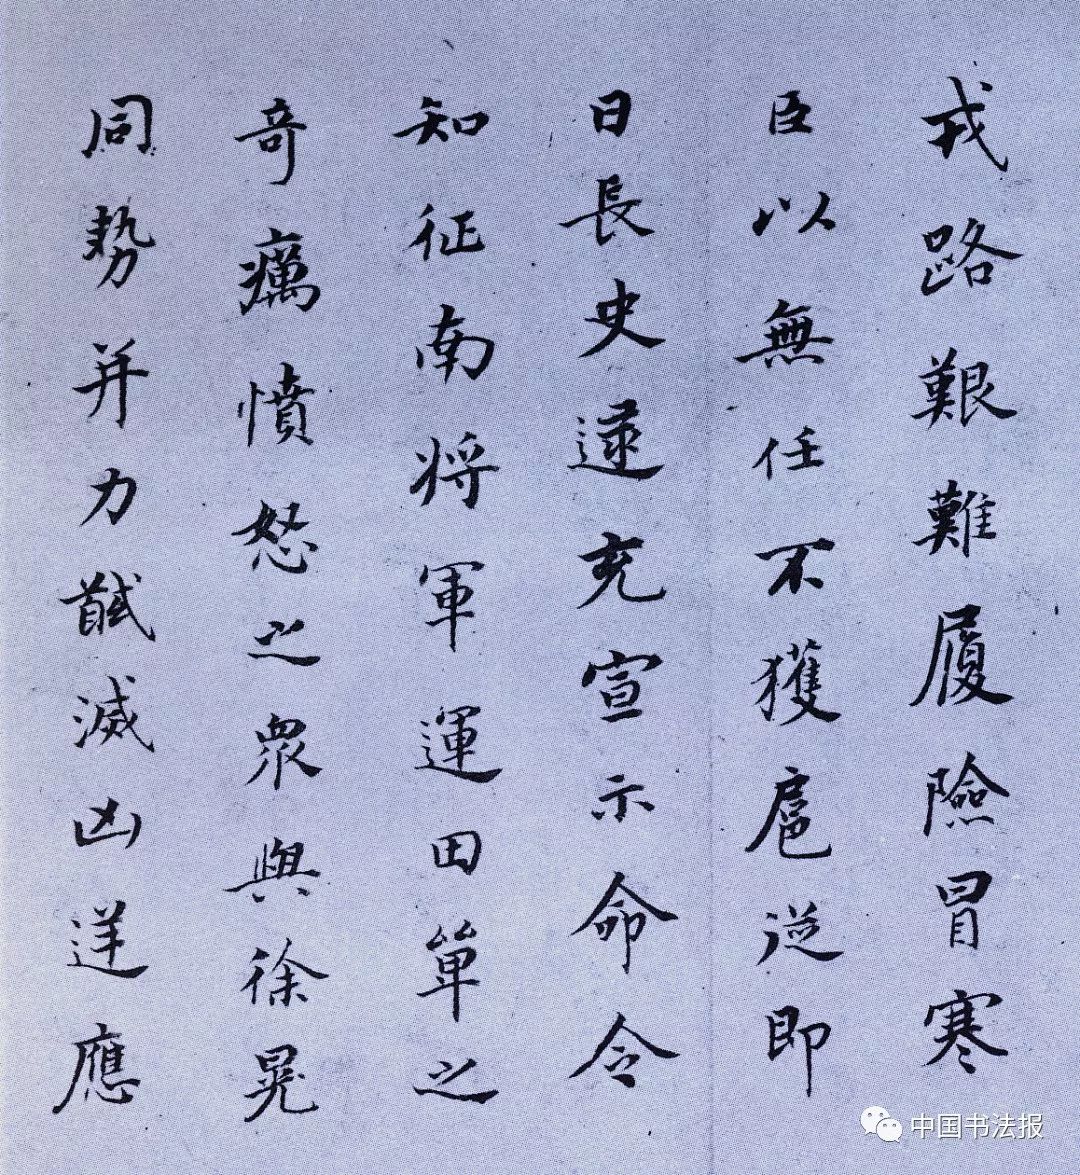 戎路艱難履險冒寒
臣以無任不獲扈從即
日長史逮充宣示命令
知征南将軍運田單之
奇癘憤怒之衆與徐晃
同勢并力馘滅凶逆應
中国书法报